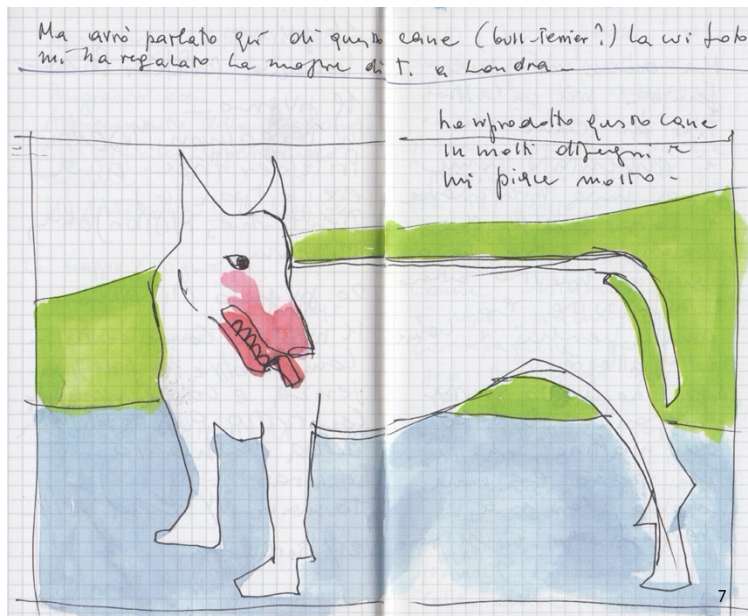 Ma avrò parlato qui di questo cane (bull-terrier?) la cui foto
mi ha regalato la moglie di T. a Londra -
ho riprodotto questo cane
in molti disegni e
mi piace molto -
7